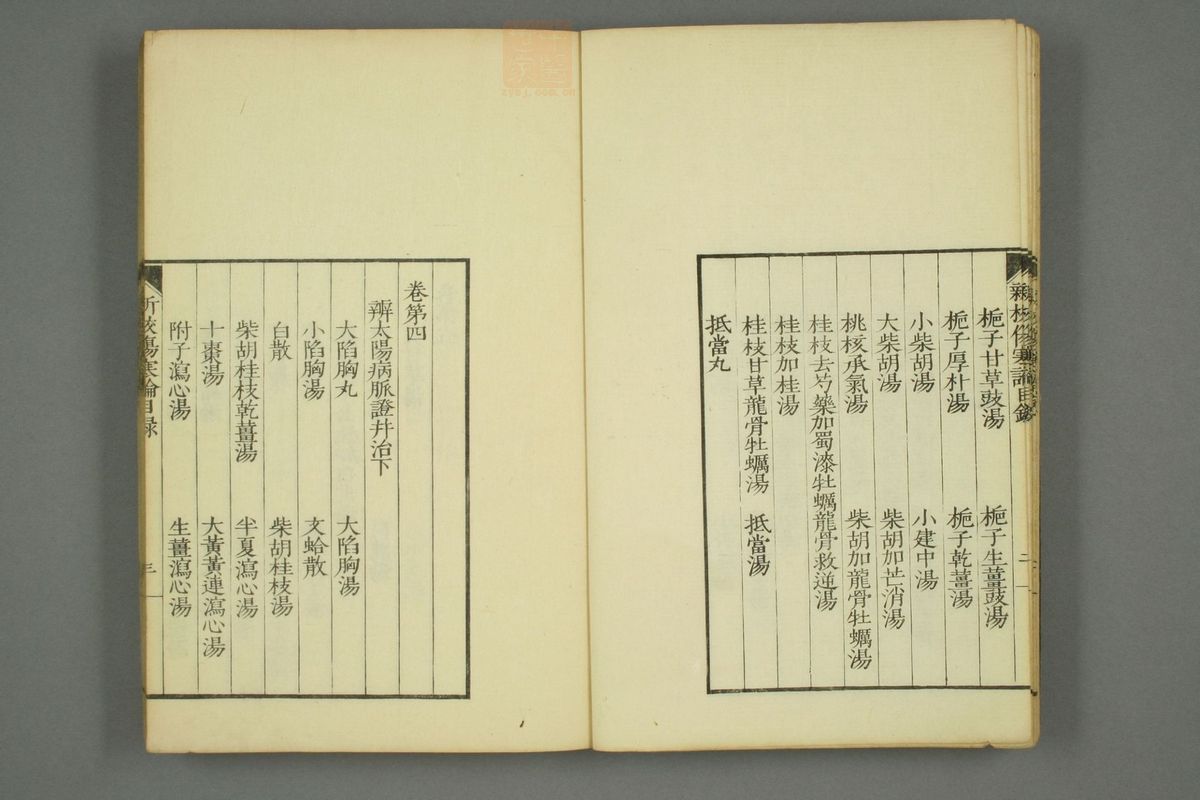 新校傷寒論目錄
二
梔子甘草豉湯　梔子生薑豉湯
梔子厚朴湯　梔子乾薑湯
小柴胡湯　小建中湯
大柴胡湯　柴胡加芒消湯
桃核承氣湯　柴胡加龍骨牡蠣湯
桂枝去芍藥加蜀漆牡蠣龍骨救逆湯
桂枝加桂湯
桂枝甘草龍骨牡蠣湯　抵當湯
抵當丸
卷第四
辨太陽病脈證并治下
大陷胸丸　大陷胸湯
小陷胸湯　文蛤散
白散　柴胡桂枝湯
柴胡桂枝乾薑湯　半夏瀉心湯
十棗湯　大黃黃連瀉心湯
附子瀉心湯　生薑瀉心湯
新校傷寒論目錄
三
zysj.com.cn